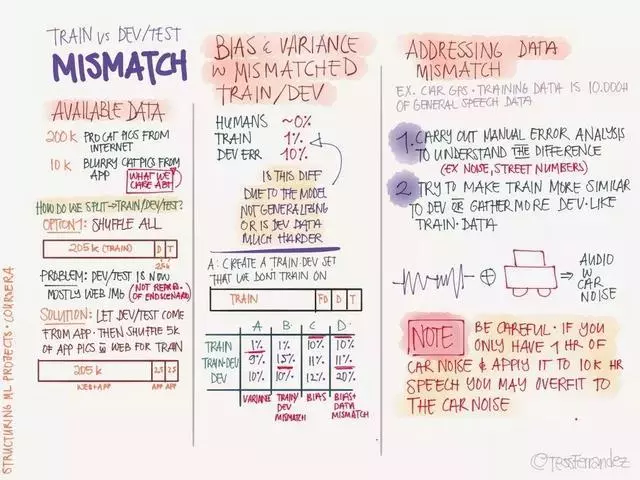 TRAIN vs DEV/TEST
MISMATCH
AVAILABLE DATA
200k PRO CAT PICS FROM
INTERNET
10k BLURRY CAT PICS FROM
APP
WHAT WE
CARE ABT
HOW DO WE SPLIT → TRAIN/DEV/TEST?
OPTION 1: SHUFFLE ALL
205k (TRAIN) D T
PROBLEM: DEV/TEST IS NOW
MOSTLY WEB IMG (NOT REPR.
OF END SCENARIO)
SOLUTION: LET DEV/TEST COME
FROM APP. THEN SHUFFLE 5K
OF APP PICS W WEB FOR TRAIN
205k 2.5 2.5
WEB+APP APP APP
BIAS & VARIANCE
W MISMATCHED
TRAIN/DEV
HUMANS ~0%
TRAIN 1%
DEV ERR 10%
IS THIS DIFF
DUE TO THE MODEL
NOT GENERALIZING
OR IS DEV DATA
MUCH HARDER
A: CREATE A TRAIN-DEV SET
THAT WE DON'T TRAIN ON
TRAIN D T
A B C D
TRAIN 1% 1% 10% 10%
TRAIN-DEV 9% 1.5% 11% 11%
DEV 10% 10% 12% 20%
VARIANCE TRAIN/ BIAS BIAS+
DEV DATA
MISMATCH MISMATCH
ADDRESSING DATA
MISMATCH
EX. CAR GPS · TRAINING DATA IS 10.000H
OF GENERAL SPEECH DATA
1. CARRY OUT MANUAL ERROR ANALYSIS
TO UNDERSTAND THE DIFFERENCE
(EX NOISE, STREET NUMBERS)
2. TRY TO MAKE TRAIN MORE SIMILAR
TO DEV OR GATHER MORE DEV-LIKE
TRAIN-DATA
⊕ → AUDIO
W
CAR
NOISE
NOTE BE CAREFUL · IF YOU
ONLY HAVE 1 HR OF
CAR NOISE & APPLY IT TO 10K HR
SPEECH YOU MAY OVERFIT TO
THE CAR NOISE
STRUCTURING ML PROJECTS · COURSERA
@TessFerrandez